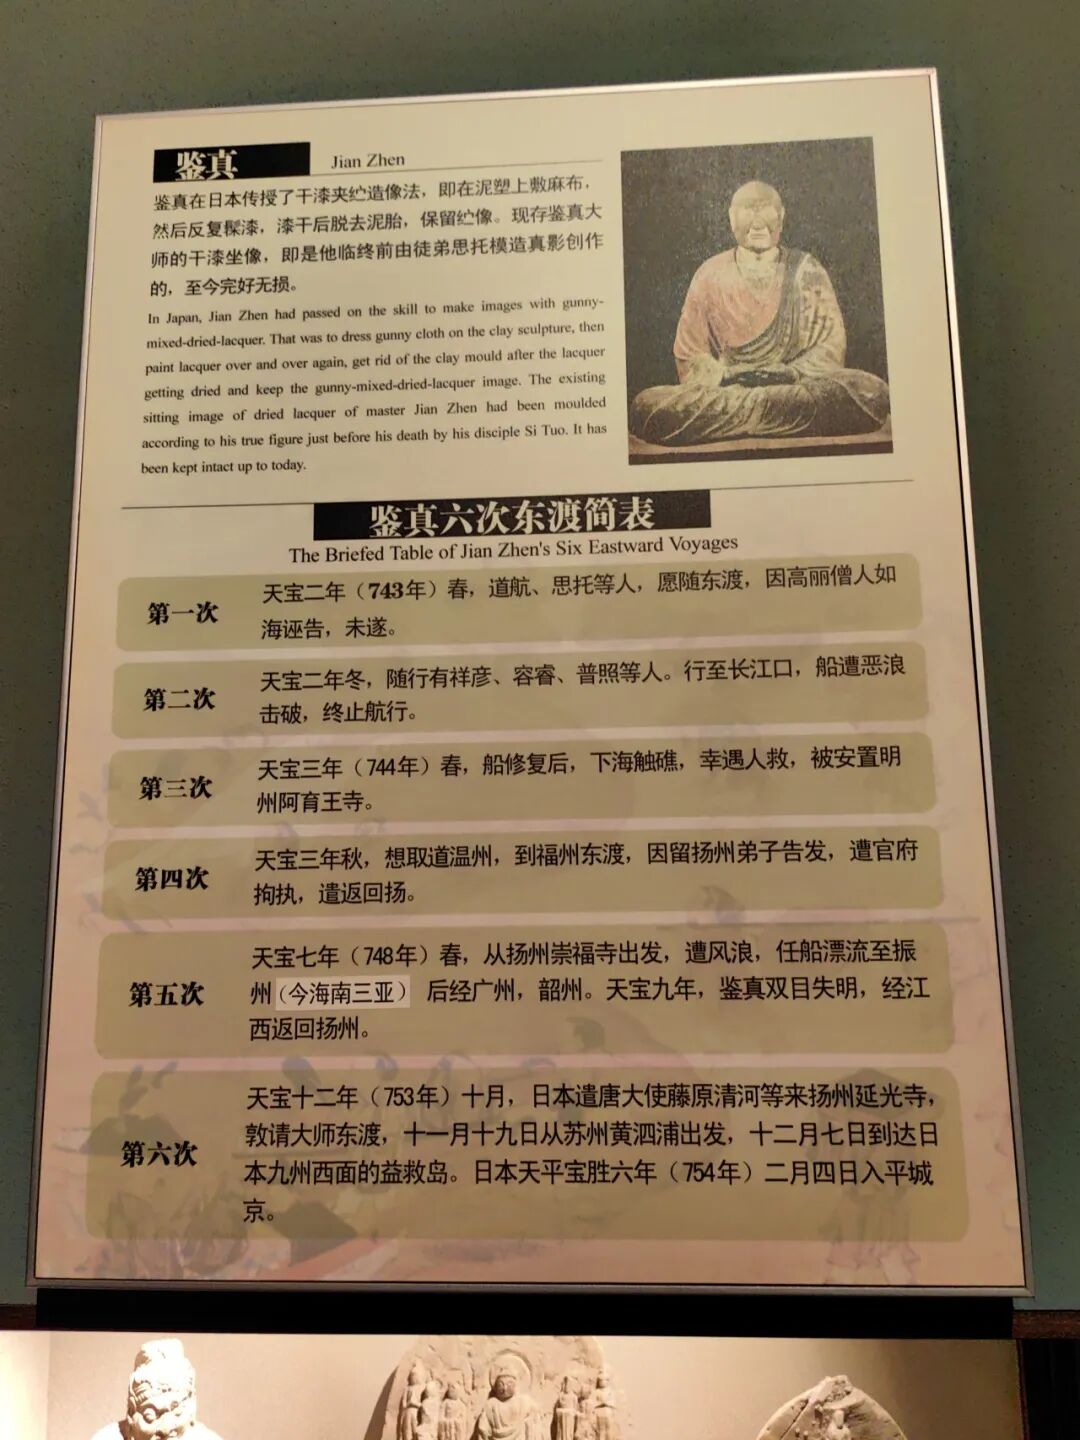 鉴真
Jian Zhen
鉴真在日本传授了干漆夹纻造像法，即在泥塑上敷麻布，
然后反复髹漆，漆干后脱去泥胎，保留纻像。现存鉴真大
师的干漆坐像，即是他临终前由徒弟思托模造真影创作
的，至今完好无损。
In Japan, Jian Zhen had passed on the skill to make images with gunny-
mixed-dried-lacquer. That was to dress gunny cloth on the clay sculpture, then
paint lacquer over and over again, get rid of the clay mould after the lacquer
getting dried and keep the gunny-mixed-dried-lacquer image. The existing
sitting image of dried lacquer of master Jian Zhen had been moulded
according to his true figure just before his death by his disciple Si Tuo. It has
been kept intact up to today.
鉴真六次东渡简表
The Briefed Table of Jian Zhen's Six Eastward Voyages
第一次
天宝二年（743年）春，道航、思托等人，愿随东渡，因高丽僧人如
海诬告，未遂。
第二次
天宝二年冬，随行有祥彦、容睿、普照等人。行至长江口，船遭恶浪
击破，终止航行。
第三次
天宝三年（744年）春，船修复后，下海触礁，幸遇人救，被安置明
州阿育王寺。
第四次
天宝三年秋，想取道温州，到福州东渡，因留扬州弟子告发，遭官府
拘执，遣返回扬。
第五次
天宝七年（748年）春，从扬州崇福寺出发，遭风浪，任船漂流至振
州（今海南三亚） 后经广州，韶州。天宝九年，鉴真双目失明，经江
西返回扬州。
第六次
天宝十二年（753年）十月，日本遣唐大使藤原清河等来扬州延光寺，
敦请大师东渡，十一月十九日从苏州黄泗浦出发，十二月七日到达日
本九州西面的益救岛。日本天平宝胜六年（754年）二月四日入平城
京。